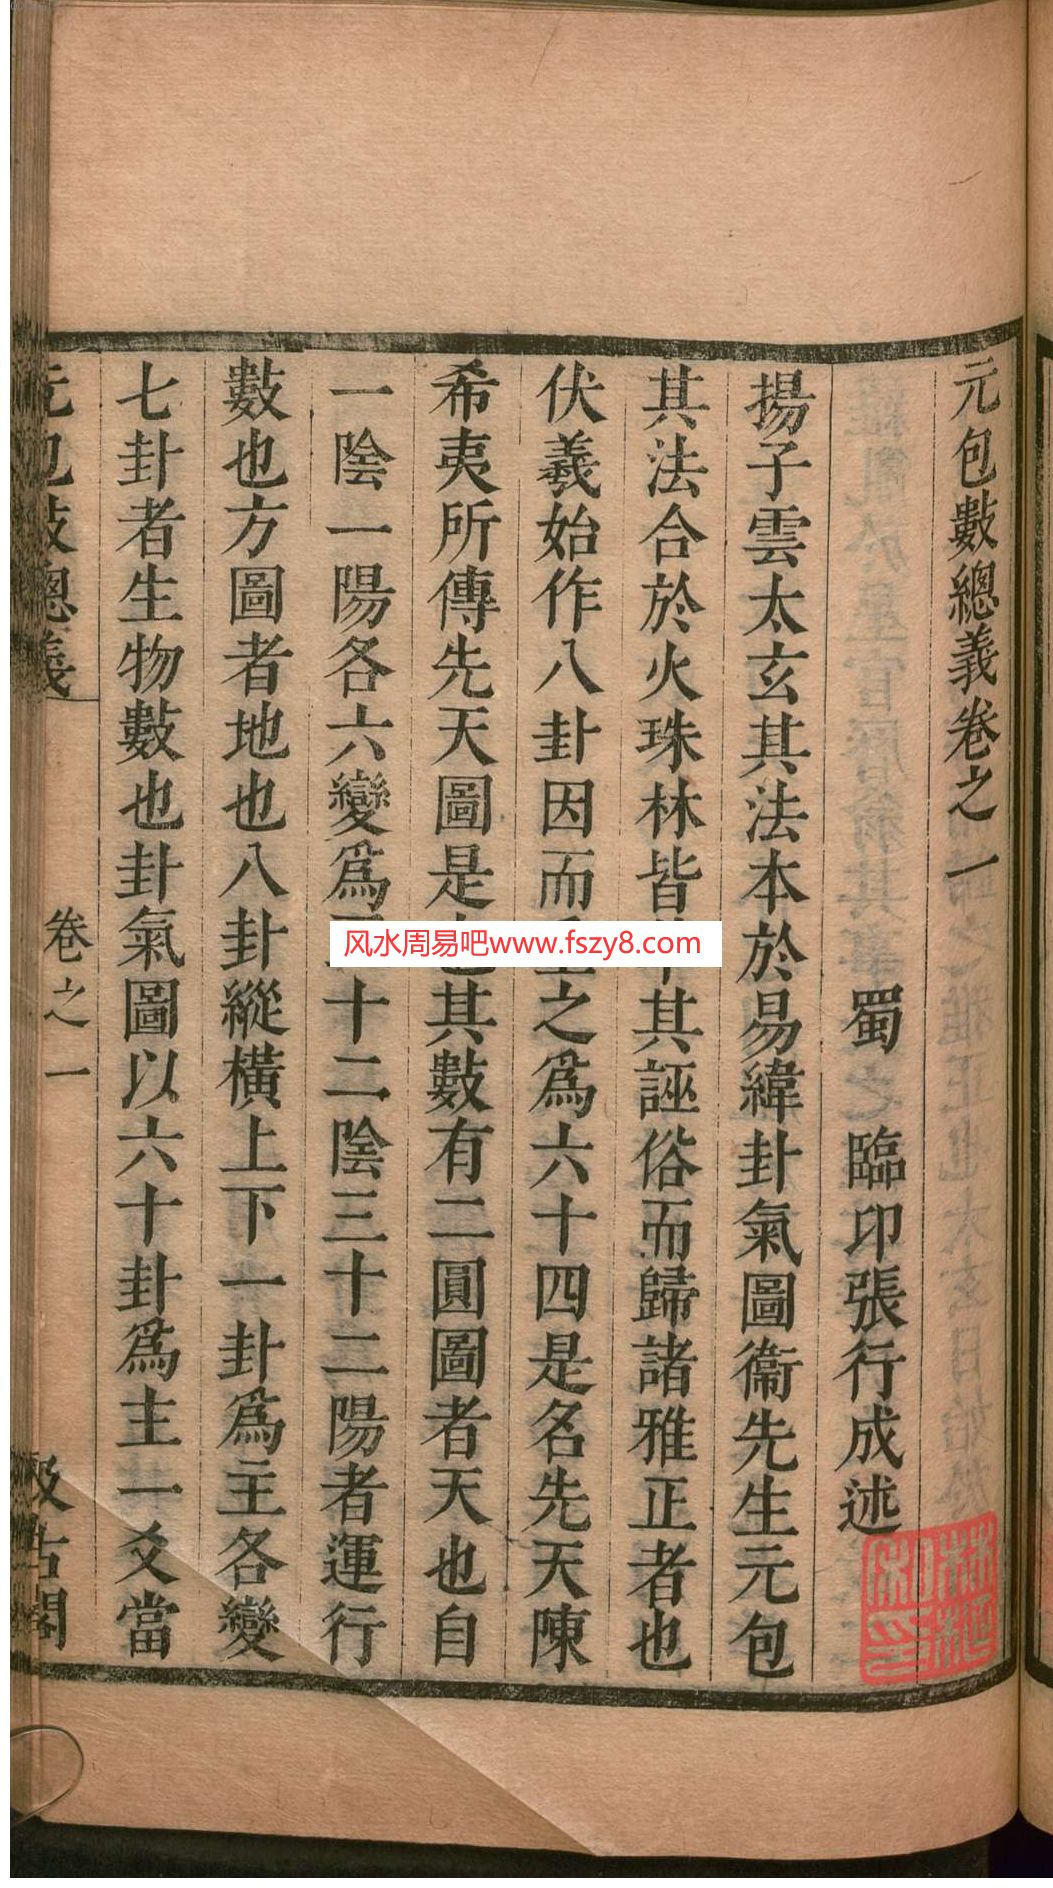 元包數總義卷之一
蜀 臨卭張行成述
揚子雲太玄其法本於易緯卦氣圖衞先生元包
其法合於火珠林皆 其誣俗而歸諸雅正者也
伏羲始作八卦因而 之爲六十四是名先天陳
希夷所傳先天圖是 其數有二圓圖者天也自
一陰一陽各六變爲 十二陰三十二陽者運行
數也方圖者地也八卦縱橫上下一卦爲主各變
七卦者生物數也卦氣圖以六十卦爲主一爻當
元包數總義 卷之一 汲古閣
风水周易吧www.fszy8.com